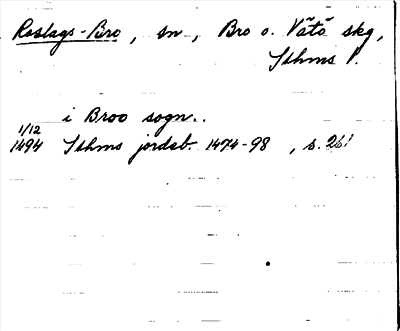 Roslags-Bro, sn, Bro o. Vätö skg,
Sthms l.
i Broo sogn..
1/12
1494 Sthms jordeb. 1474-98, s. 261